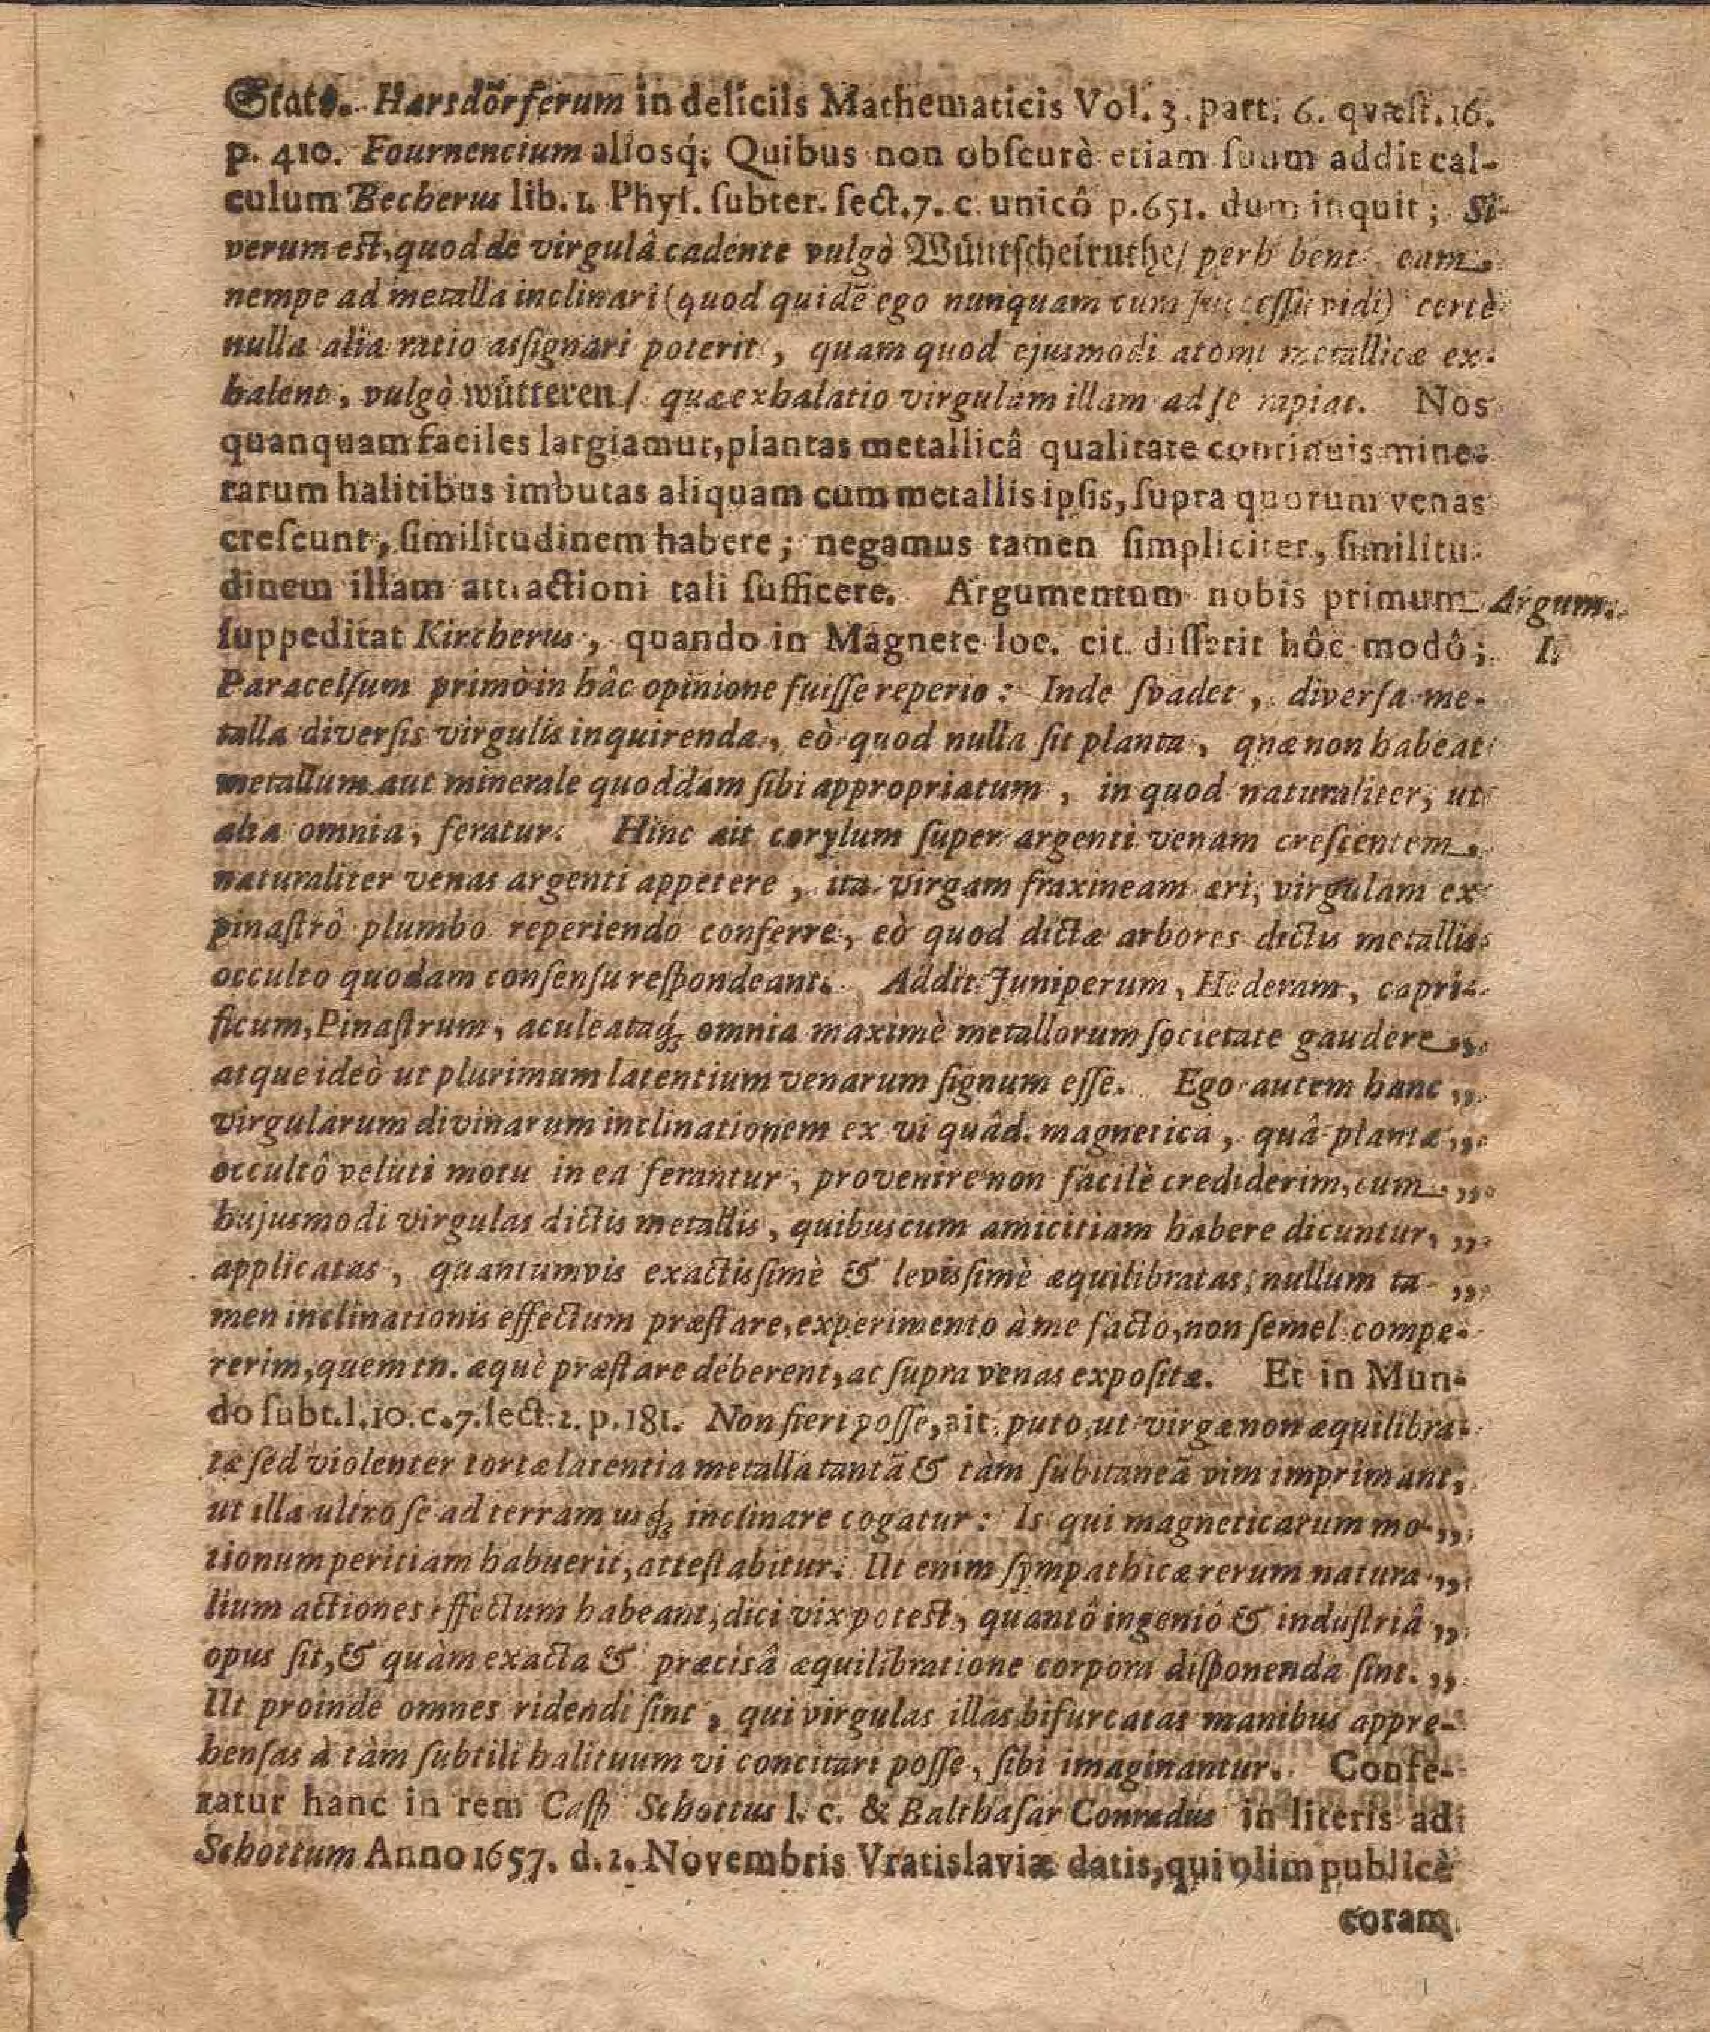 Stat. Harsdörferum in deliciis Mathematicis Vol. 3. part. 6. qvæst. 16.
p. 410. Fournencium aliosq́; Quibus non obscurè etiam suum addit cal-
culum Becherus lib. 1. Phys. subter. sect. 7. c. unicô p. 651. dum inquit; Si
verum est, quod de virgulâ cadente vulgò Wüntschelruthe/ perhibent eam
nempe ad metalla inclinari (quod quidē ego nunquam cum successu vidi) certè
nulla alia ratio assignari poterit, quam quod ejusmodi atomi metallicæ ex-
halent, vulgò wütteren/ quæ exhalatio virgulam illam ad se rapiat. Nos
quanquam faciles largiamur, plantas metallicâ qualitate continuis mine-
rarum halitibus imbutas aliquam cum metallis ipsis, supra quorum venas
crescunt, similitudinem habere; negamus tamen simpliciter, similitu-
dinem illam attractioni tali sufficere. Argumentum nobis primum Argum.
suppeditat Kircherus, quando in Magnete loc. cit. disserit hôc modô; I.
Paracelsum primò in hâc opinione fuisse reperio: Inde svadet, diversa me-
talla diversis virgulis inquirenda, eò quod nulla sit planta, quæ non habeat
metallum aut minerale quoddam sibi appropriatum, in quod naturaliter, ut
alia omnia, feratur. Hinc ait corylum super argenti venam crescentem
naturaliter venas argenti appetere, ita virgam fraxineam æri, virgulam ex
pinastrô plumbo reperiendo conferre, eò quod dictæ arbores dictis metallis
occulto quodam consensu respondeant. Addit Juniperum, Hederam, capri-
ficum, Pinastrum, aculeataq́; omnia maximè metallorum societate gaudere „
atque ideò ut plurimum latentium venarum signum esse. Ego autem hanc „
virgularum divinarum inclinationem ex vi quâd. magnetica, quâ plantæ „
occultô veluti motu in ea ferantur, provenire non facilè crediderim, cum „
hujusmodi virgulas dictis metallis, quibuscum amicitiam habere dicuntur, „
applicatas, quantumvis exactissimè & levissimè æquilibratas, nullum ta- „
men inclinationis effectum præstare, experimento à me facto, non semel compe-
rerim, quem tn. æquè præstare deberent, ac supra venas expositæ. Et in Mun-
do subt. l. 10. c. 7. sect. 2. p. 181. Non fieri posse, ait, puto, ut virgæ non æquilibra-
tæ sed violenter tortæ latentia metalla tantā & tàm subitaneā vim imprimant,
ut illa ultro se ad terram usq́; inclinare cogatur: Is qui magneticarum mo- „
tionum peritiam habuerit, attestabitur. Ut enim sympathicæ rerum natura- „
lium actiones effectum habeant, dici vix potest, quantô ingeniô & industriâ „
opus sit, & quàm exacta & præcisâ æquilibratione corpora disponenda sint. „
Ut proinde omnes ridendi sint, qui virgulas illas bifurcatas manibus appre-
hensas à tàm subtili halituum vi concitari posse, sibi imaginantur. Confe-
ratur hanc in rem Casp. Schottus l. c. & Balthasar Conradus in literis ad
Schottum Anno 1657. d. 1. Novembris Vratislaviæ datis, qui olim publicè
coram